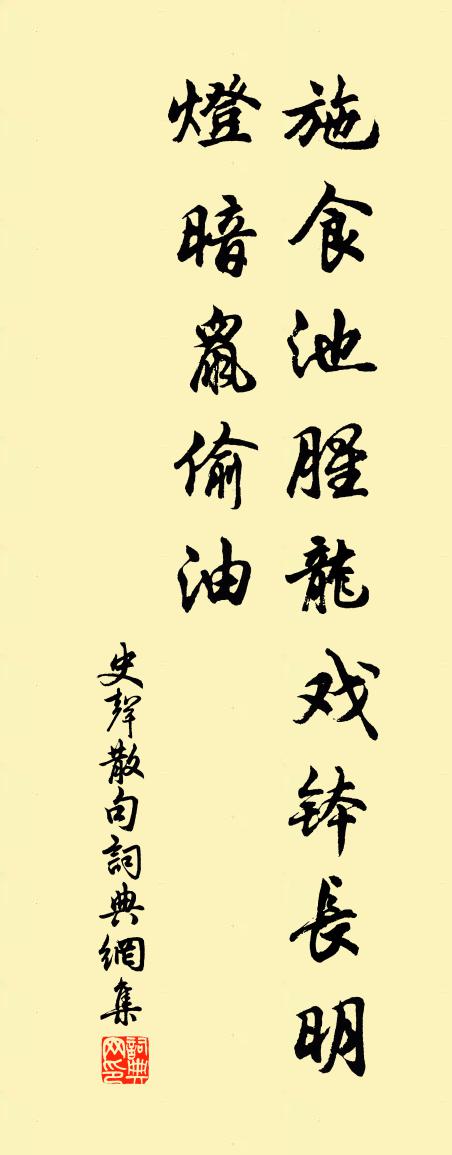 施食池腥龍戏鉢長明
燈暗鼠偷油
史聲散句詞典網集
詞典网印